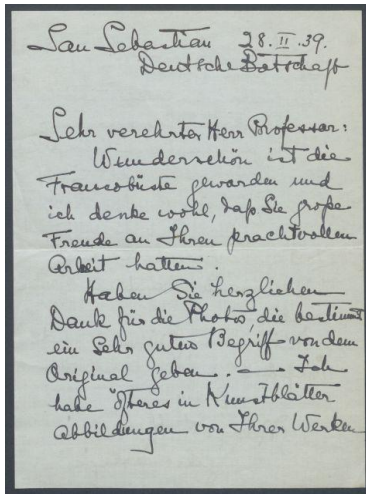 San Sebastian 28.II.39.
Deutsche Botschaft
Sehr verehrter Herr Professor:
Wunderschön ist die
Francobüste geworden und
ich denke wohl, daß Sie große
Freude an Ihren prachtvollen
Arbeit hatten.
Haben Sie herzlichen
Dank für die Photos, die bestimmt
ein sehr guten Begriff von dem
Original geben. — Ich
habe öfteres in Kunstblätter
Abbildungen von Ihrer Werken